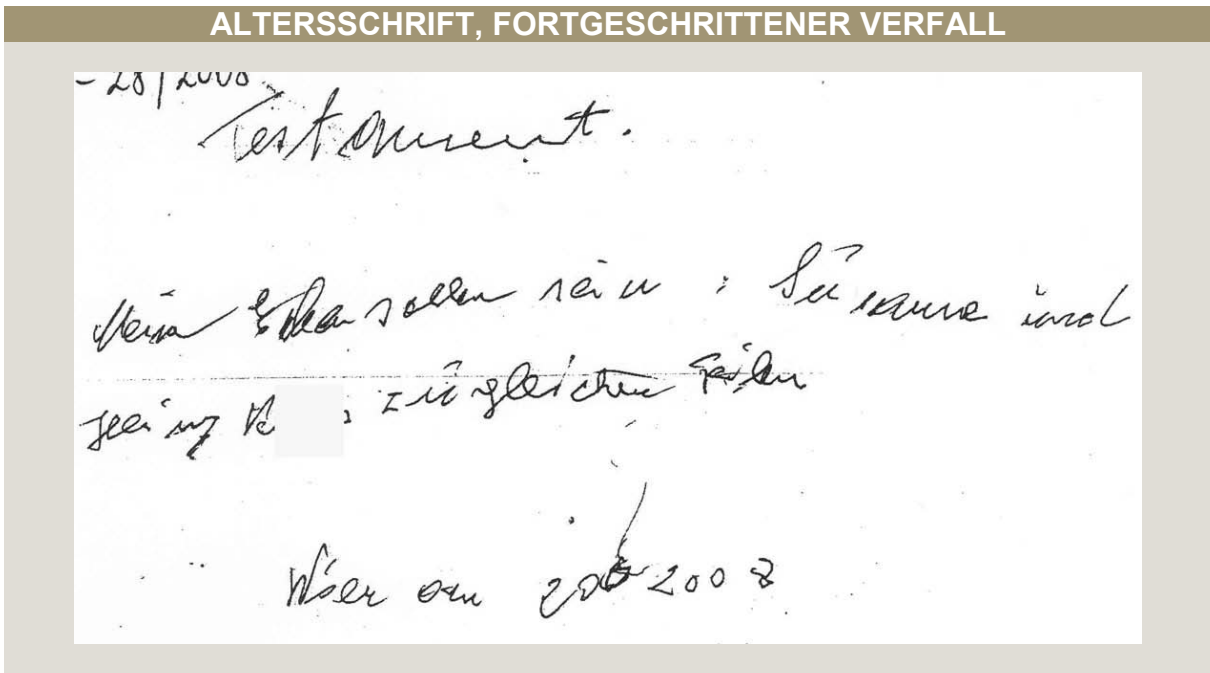 ALTERSSCHRIFT, FORTGESCHRITTENER VERFALL
- 28/2008
Testament.
Mein Erben sollen sein : Susanne und
Heinz K zu gleichen Teilen
Wien am 2008